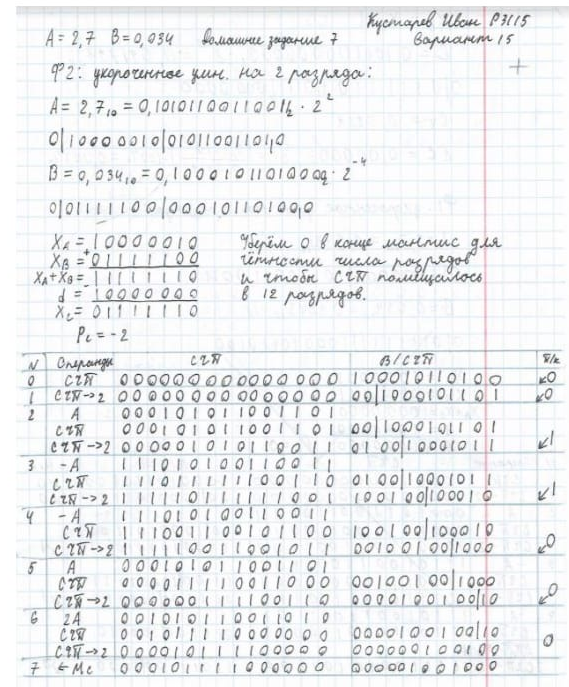 Кустарев Иван P3115
A = 2,7 B = 0,034 Домашнее задание 7 Вариант 15
+
Ф2: укороченное умн. на 2 разряда:
A = 2,7₁₀ = 0,101011001100₁₂ · 2²
0|10000010|01011001101,0
B = 0,034₁₀ = 0,10001011010000₂ · 2⁻⁴
0|01111100|00010110100,0
X_A = 10000010 Уберём 0 в конце мантис для
X_B = + 01111100 чётности числа разрядов
X_A + X_B = 11111110 и чтобы СЧП помещалось
d = 10000000 в 12 разрядов.
X_C = 01111110
P_C = -2
N Операнды СЧП В/СЧП П/к
0 СЧП 00000000000000 100010110100 0
1 СЧП→2 00000000000000 00|1000101101 0
2 A 000101011001101
СЧП 000101011001101 00|1000101101
СЧП→2 00000101011 0011 0100|10001011 1
3 -A 11101010011 0011
СЧП 11101111111 00110 0100|10001011
СЧП→2 11111011111 1001 100100|100010 1
4 -A 11101010011 0011
СЧП 11100110010 1100 100100|100010
СЧП→2 11111001100 1011 00100100|1000 0
5 A 00010101100 1101
СЧП 00001111001 1000 00100100|1000
СЧП→2 00000011110 0110 0000100100|10 0
6 2A 00101011001 1010
СЧП 00101111000 0000 0000100100|10
СЧП→2 00001011110 0000 000000100100 0
7 ←Mc 00010111100 0000 000001001000